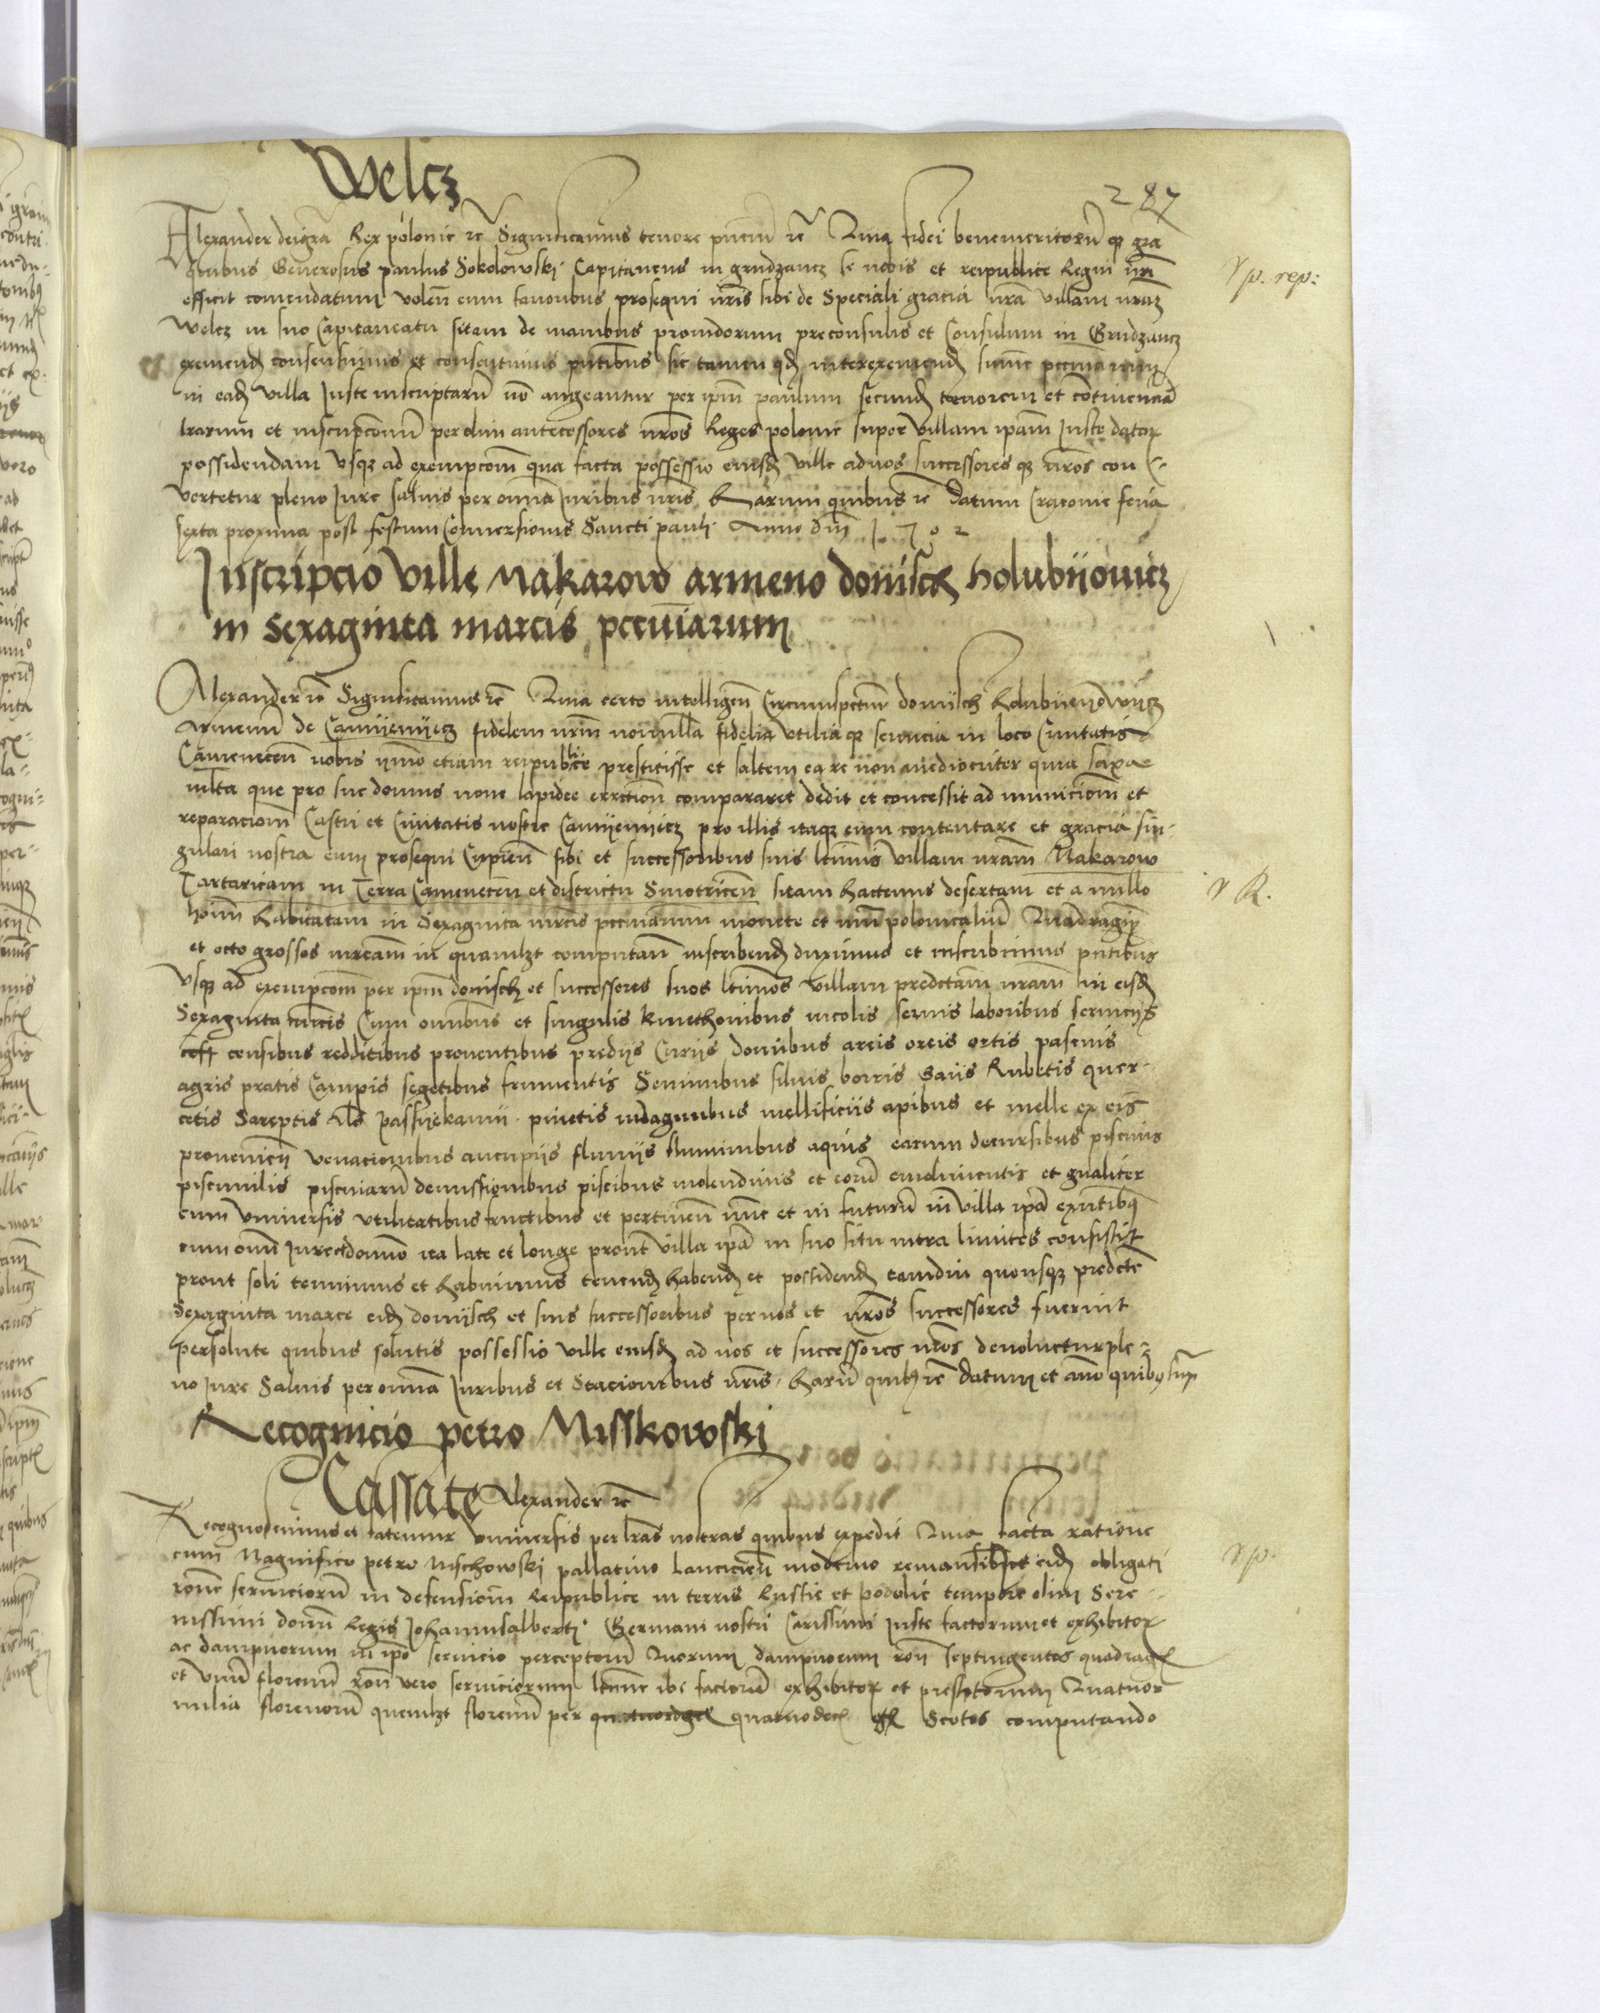 Welcz
287
Alexander dei gra Rex polonie rc Significamus tenore pntium rc Quia fidei benemeritorum qz gra
Generosus paulus Sokolowski Capitaneus in grudzancz se nobis et reipublice Regni nri
efficit comendatum volen eum favoribus prosequi nris sibi de Speciali gracia nra villam nram
Welcz in suo Capitaneatu sitam de manibus providorum preconsulis et Consulum in Grudzancz
eximend consensimus et consentimus pntibus sic tamen qd in tereximend summe pecuniarum
in ead villa Juste inscriptaru no augeantur per ipm paulum secund tenorem et continencia
lrarum et inscripcionu per olim antecessores nros Reges polonie super villam ipam Juste dator
possidendam vsqz ad exempcom qua facta possessio eiusd ville ad nos successores qz nros con
vertetur pleno Jure salvis per omnia Juribus nris Harum quibus rc datum Cracovie feria
sexta proxima post festum Conversionis Sancti pauli Anno dni 1502
V p. rep:
Inscripcio ville Makarow armeno donisch holubijowicz
in sexaginta marcis pecuniarum
Alexander rc Significamus rc Quia certo intelligen Circumspectum donijsch
Armenu de Camijenijecz fidelem nrm nonnulla fidelia vtilia qz servicia in loco Civitatis
Camenecen nobis ymo etiam reipublice prestitisse et saltem ea re non mediocriter quia saxa
multa que pro sue domus nove lapidee erection compararet dedit et concessit ad municiom et
reparaciom Castri et Civitatis nostre Camijenijecz pro illis itaqz eum contentare et gracia sin
gulari nostra eum prosequi Cupien sibi et successoribus suis ltimis villam nram Makarow
Tartaricam in Terra Camenecen et districtu Smotricen sitam hactenus desertam et a nullo
homin habitatam in Sexaginta mrcis pecuniarum monete et nui polonicaliu Quadragin
et octo grossos mrcam in quamlzt computan inscribend duximus et inscribimus pntibus
Vsqz ad exempcom per ipm donisch et successores suos ltimos villam predctam nram in eisd
Sexaginta mrcis Cum omnibus et singulis kmethonibus incolis servis laboribus servicijs
censibus redditibus proventibus predijs Curijs domibus areis oreis ortis pascuis
agris pratis Campis segetibus frumentis Seminibus silvis borris Gaijs Rubetis quer
cetis Sareptis als passijekamij pinetis indaginibus mellificijs apibus et melle ex eis
provenien venacionibus aucupijs fluvijs fluminibus aquis earum decursibus piscinis
piscinulis piscinaru demissionibus piscibus molendinis et eoru emolumentis et gnaliter
cum Vniversis vtilitatibus fructibus et pertinen nunc et in futuru in villa ipa exntibus
cum omni Jure et domino ita late et longe prout villa ipa in suo situ intra limites consistit
prout soli tenuimus et habuimus tenend habend et possidend tamdiu quousqz predcte
Sexaginta marce eid donijsch et suis successoribus per nos et nros successores fuerint
persolute quibus solutis possessio ville eiusd ad nos et successores nros devoluetur ple
no Jure Salvis per omnia Juribus et Stacionibus nris Haru quibz rc datum et anno quibus supra
V R.
Recognicio petro Misskowski
Cassate Alexander rc
Recognoscimus et fatemur vniversis per lras nostras quibus expedit Quia facta ratione
cum Magnifico petro Mischowski pallatino lancicien moderno eid obligati
rone serviciorum in defensiom Reipublice in terris Russie et podolie tempore olim Sere
nissimi domini Regis Johannisalberti Germani nostri Carissimi Juste factorum et exhibitor
ac dampnorum in ipo servicio perceptoru Quorum dampnorum ron septingentos quadrag
et vnum florenu ron vero serviciorum ibi factorum exhibitor et prestitorum Quatuor
milia florenoru quemlzt florenu per quatuordec Scotos computando
V p.